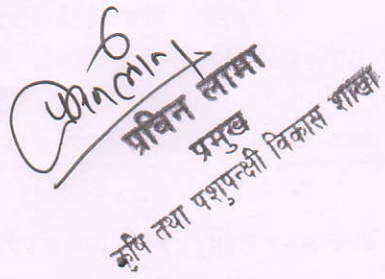 प्रविन लामा
प्रमुख
कृषि तथा पशुपन्क्षी विकास शाखा